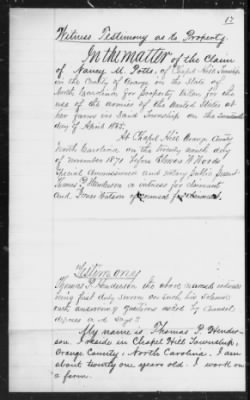 17
Witness Testimony as to Property
In the matter of the Claim
of Nancy M. Potts, of Chapel Hill Township
in the County of Orange in the State of
North Carolina for property taken for the
use of the armies of the United States at
her farm in said Township on the
day of April 1865.
At Chapel Hill Orange County
North Carolina on the twenty day
of November 1871 before
Special Commissioner and Notary Public
Thomas P. Henderson a witness for claimant
And Jones Watson counsel for claimant.
Testimony
Thomas P. Henderson the above named witness
being first duly sworn on such his solemn
oath answering questions asked by Counsel
deposes and says
My name is Thomas P. Hender-
son. I reside in Chapel Hill Township,
Orange County, North Carolina. I am
about twenty one years old. I work on
a farm.